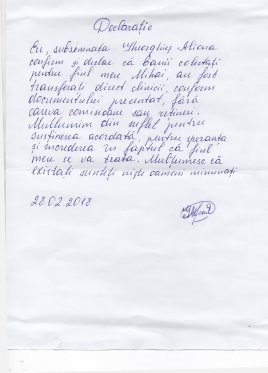 Declarație
Eu, subsemnata Gheorghieș Aliona
confirm și declar că banii colectați
pentru fiul meu Mihai, au fost
transferați direct clinicii, conform
documentului prezentat, fără
careva comisioane sau rețineri.
Mulțumim din suflet pentru
susținerea acordată, pentru speranța
și încrederea în faptul că fiul
meu se va trata. Mulțumesc că
existați sunteți niște oameni minunați
28.02.2018